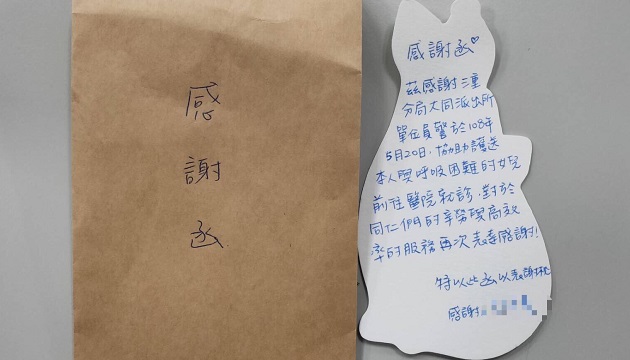 感
謝
函
感謝函♡
茲感謝三重
分局大同派出所
單位員警於108年
5月20日,協助護送
本人與呼吸困難的女兒
前往醫院就診,對於
同仁們的辛勞與高效
率的服務再次表達感謝!
特以此函以表謝忱
感謝